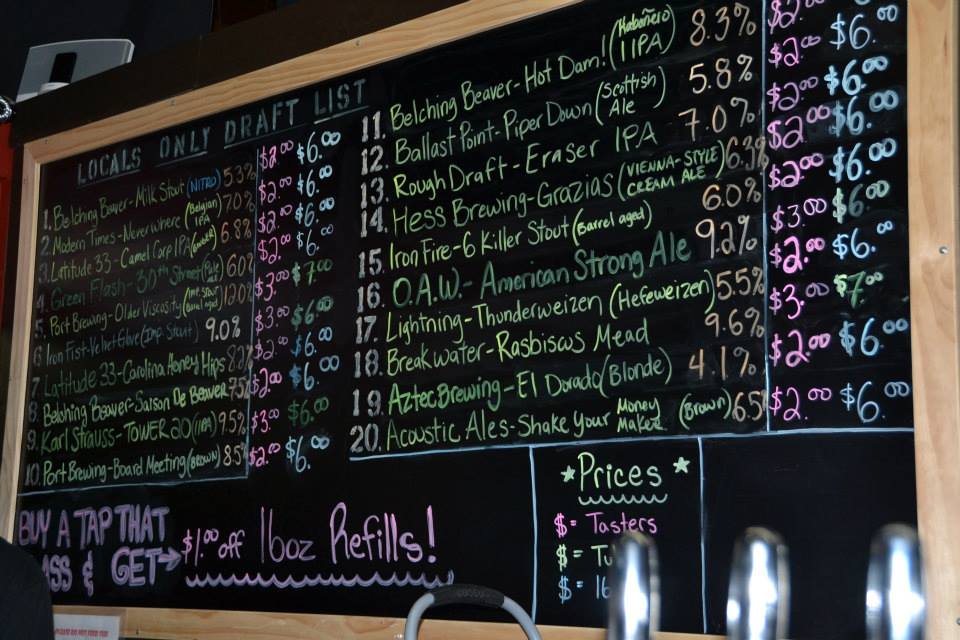 LOCALS ONLY DRAFT LIST
1. Belching Beaver - Milk Stout (NITRO) 5.3% $2.00 $6.00
2. Modern Times - Neverwhere (Belgian IPA) 7.0% $2.00 $6.00
3. Latitude 33 - Camel Corp IPA 6.8% $2.00 $6.00
4. Green Flash - 30th Street (Pale Ale) $2.00 $6.00
5. Port Brewing - Older Viscosity (Imp. Stout barrel aged) 12.0% $3.00 $7.00
6 Iron Fist - Velvet Glove (Imp. Stout) 9.0% $3.00 $6.00
7 Latitude 33 - Carolina Honey Hips $2.00 $6.00
8. Belching Beaver - Saison De Beaver 7.5% $2.00 $6.00
9. Karl Strauss - TOWER 20 (IIPA) 9.5% $3.00 $6.00
10. Port Brewing - Board Meeting (BROWN) 8.5% $2.00 $6.00
11. Belching Beaver - Hot Dam! (Habañero IIPA) 8.3% $2.00 $6.00
12. Ballast Point - Piper Down (Scottish Ale) 5.8% $2.00 $6.00
13. Rough Draft - Eraser IPA 7.0% $2.00 $6.00
14. Hess Brewing - Grazias (VIENNA-STYLE CREAM ALE) 6.3% $2.00 $6.00
15. Iron Fire - 6 Killer Stout (Barrel aged) 6.0% $2.00 $6.00
16. O.A.W. - American Strong Ale 9.2% $3.00 $6.00
17. Lightning - Thunderweizen (Hefeweizen) 5.5% $2.00 $6.00
18. Breakwater - Rasbiscus Mead 9.6% $3.00 $7.00
19. Aztec Brewing - El Dorado (Blonde) 4.1% $2.00 $6.00
20. Acoustic Ales - Shake Your Money Maker (Brown) 6.5 $2.00 $6.00
BUY A TAP THAT
ASS & GET → $1.00 off 16oz Refills!
Prices
$ = Tasters
$ = Tu
$ = 16